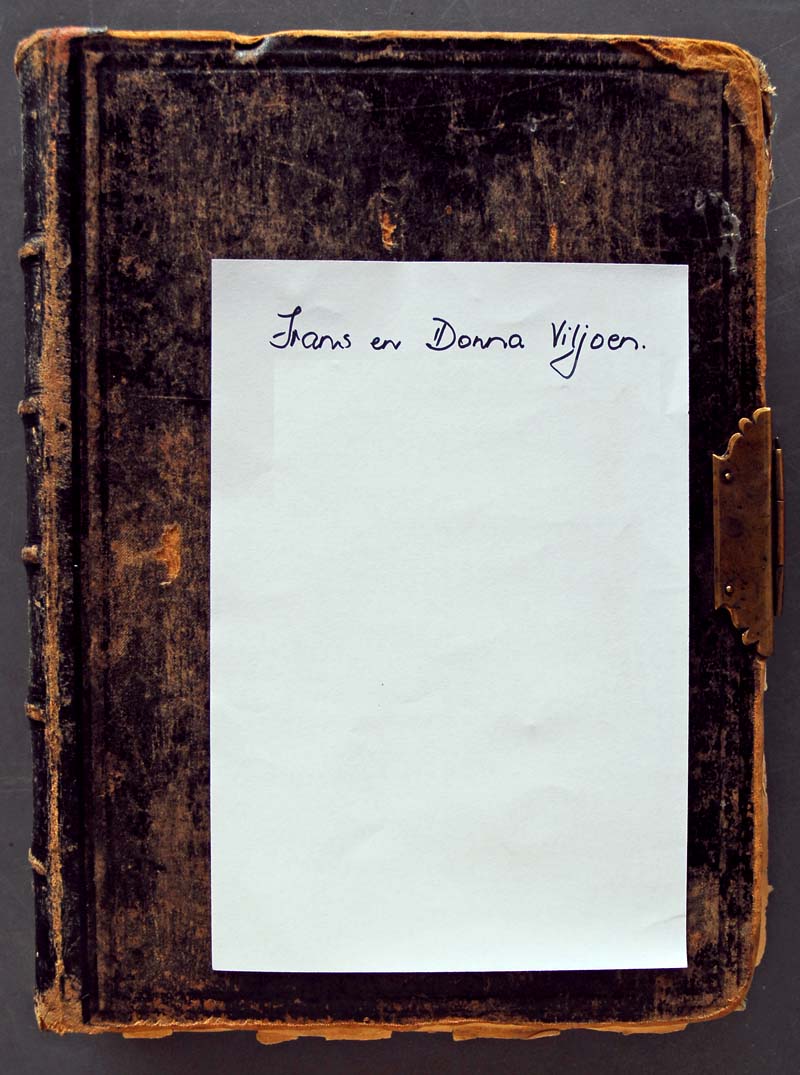 Frans en Donna Viljoen.